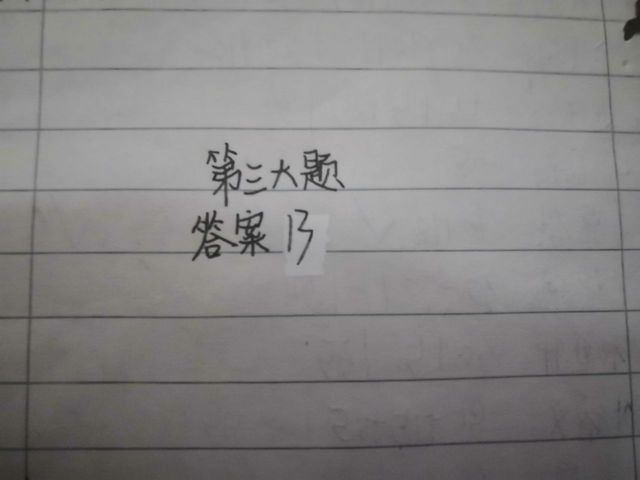 第三大题
答案13